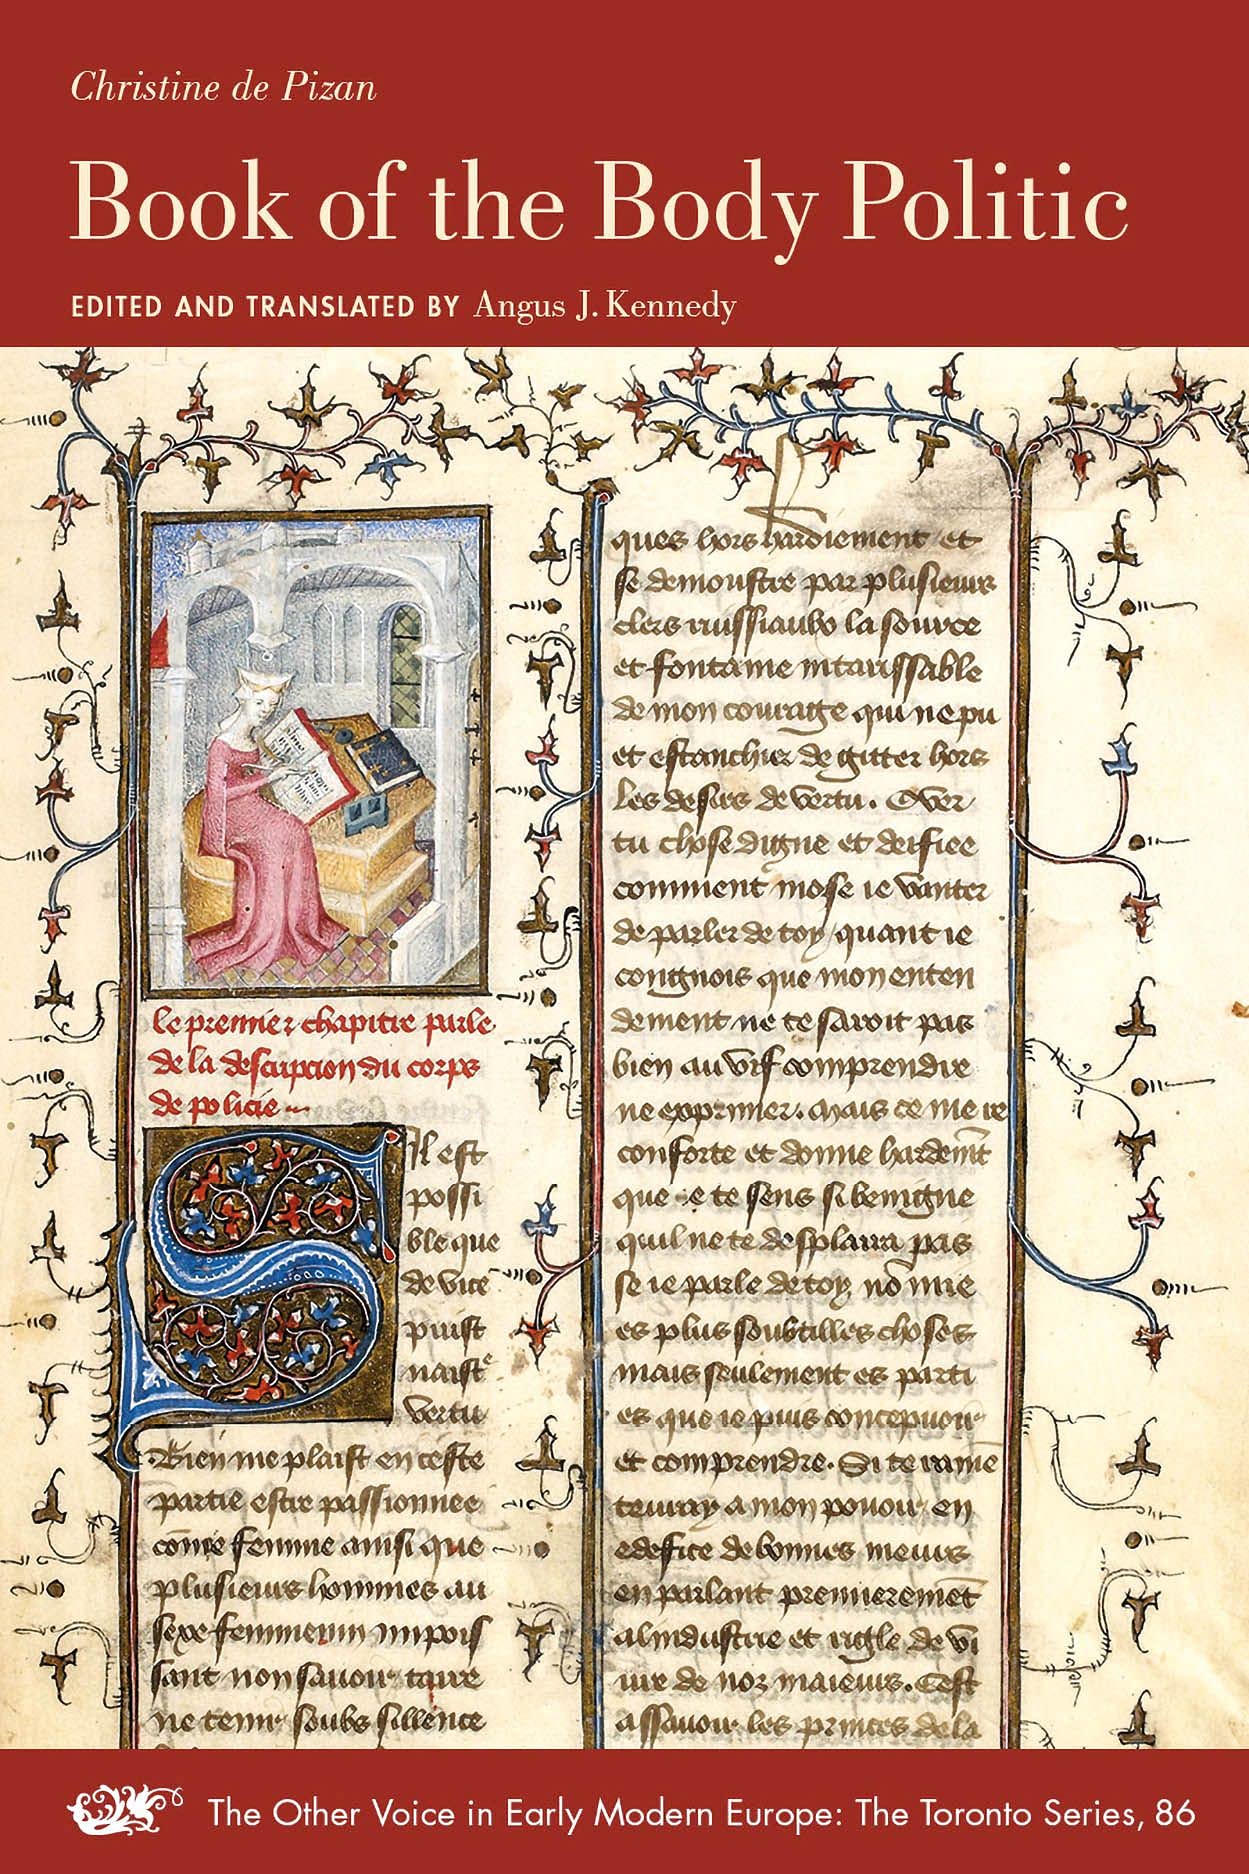 Christine de Pizan
Book of the Body Politic
EDITED AND TRANSLATED BY Angus J. Kennedy
le premier chapitre parle
de la descripcion du corps
de policie
Il est
possi
ble que
de vice
puist
naistre
vertu
Bien me plaist en ceste
partie estre passionnee
come femme ainsi que
plusieurs hommes au
sexe femmenin imposent
sant non savoir taire
ne tenir soubz sillence
ques hors hardiement et
se demonstre par plusieurs
clers ruissiaulx la source
et fontaine intarissable
de mon courage qui ne pu
et estanchier de gitter hors
les desirs de vertu. O ver
tu chose digne et deifiee
comment mose ie vanter
de parler de toy quant ie
congnois que mon enten
dement ne te saroit pas
bien au vif comprendre
ne exprimer. Mais ce me re
conforte et donne hardemt
que ie te sens si benigne
quil ne te desplaira pas
se ie parle de toy, no mie
es plus soubtilles choses
mais seulement es parti
es que ie puis concepvoir
et comprendre. Si te rame
teuray a mon povoir en
edefice de bonnes meurs
en parlant premieremet
a lindustrie et rigle de vi
ure de noz maieurs. Cest
assavoir les princes de la
The Other Voice in Early Modern Europe: The Toronto Series, 86